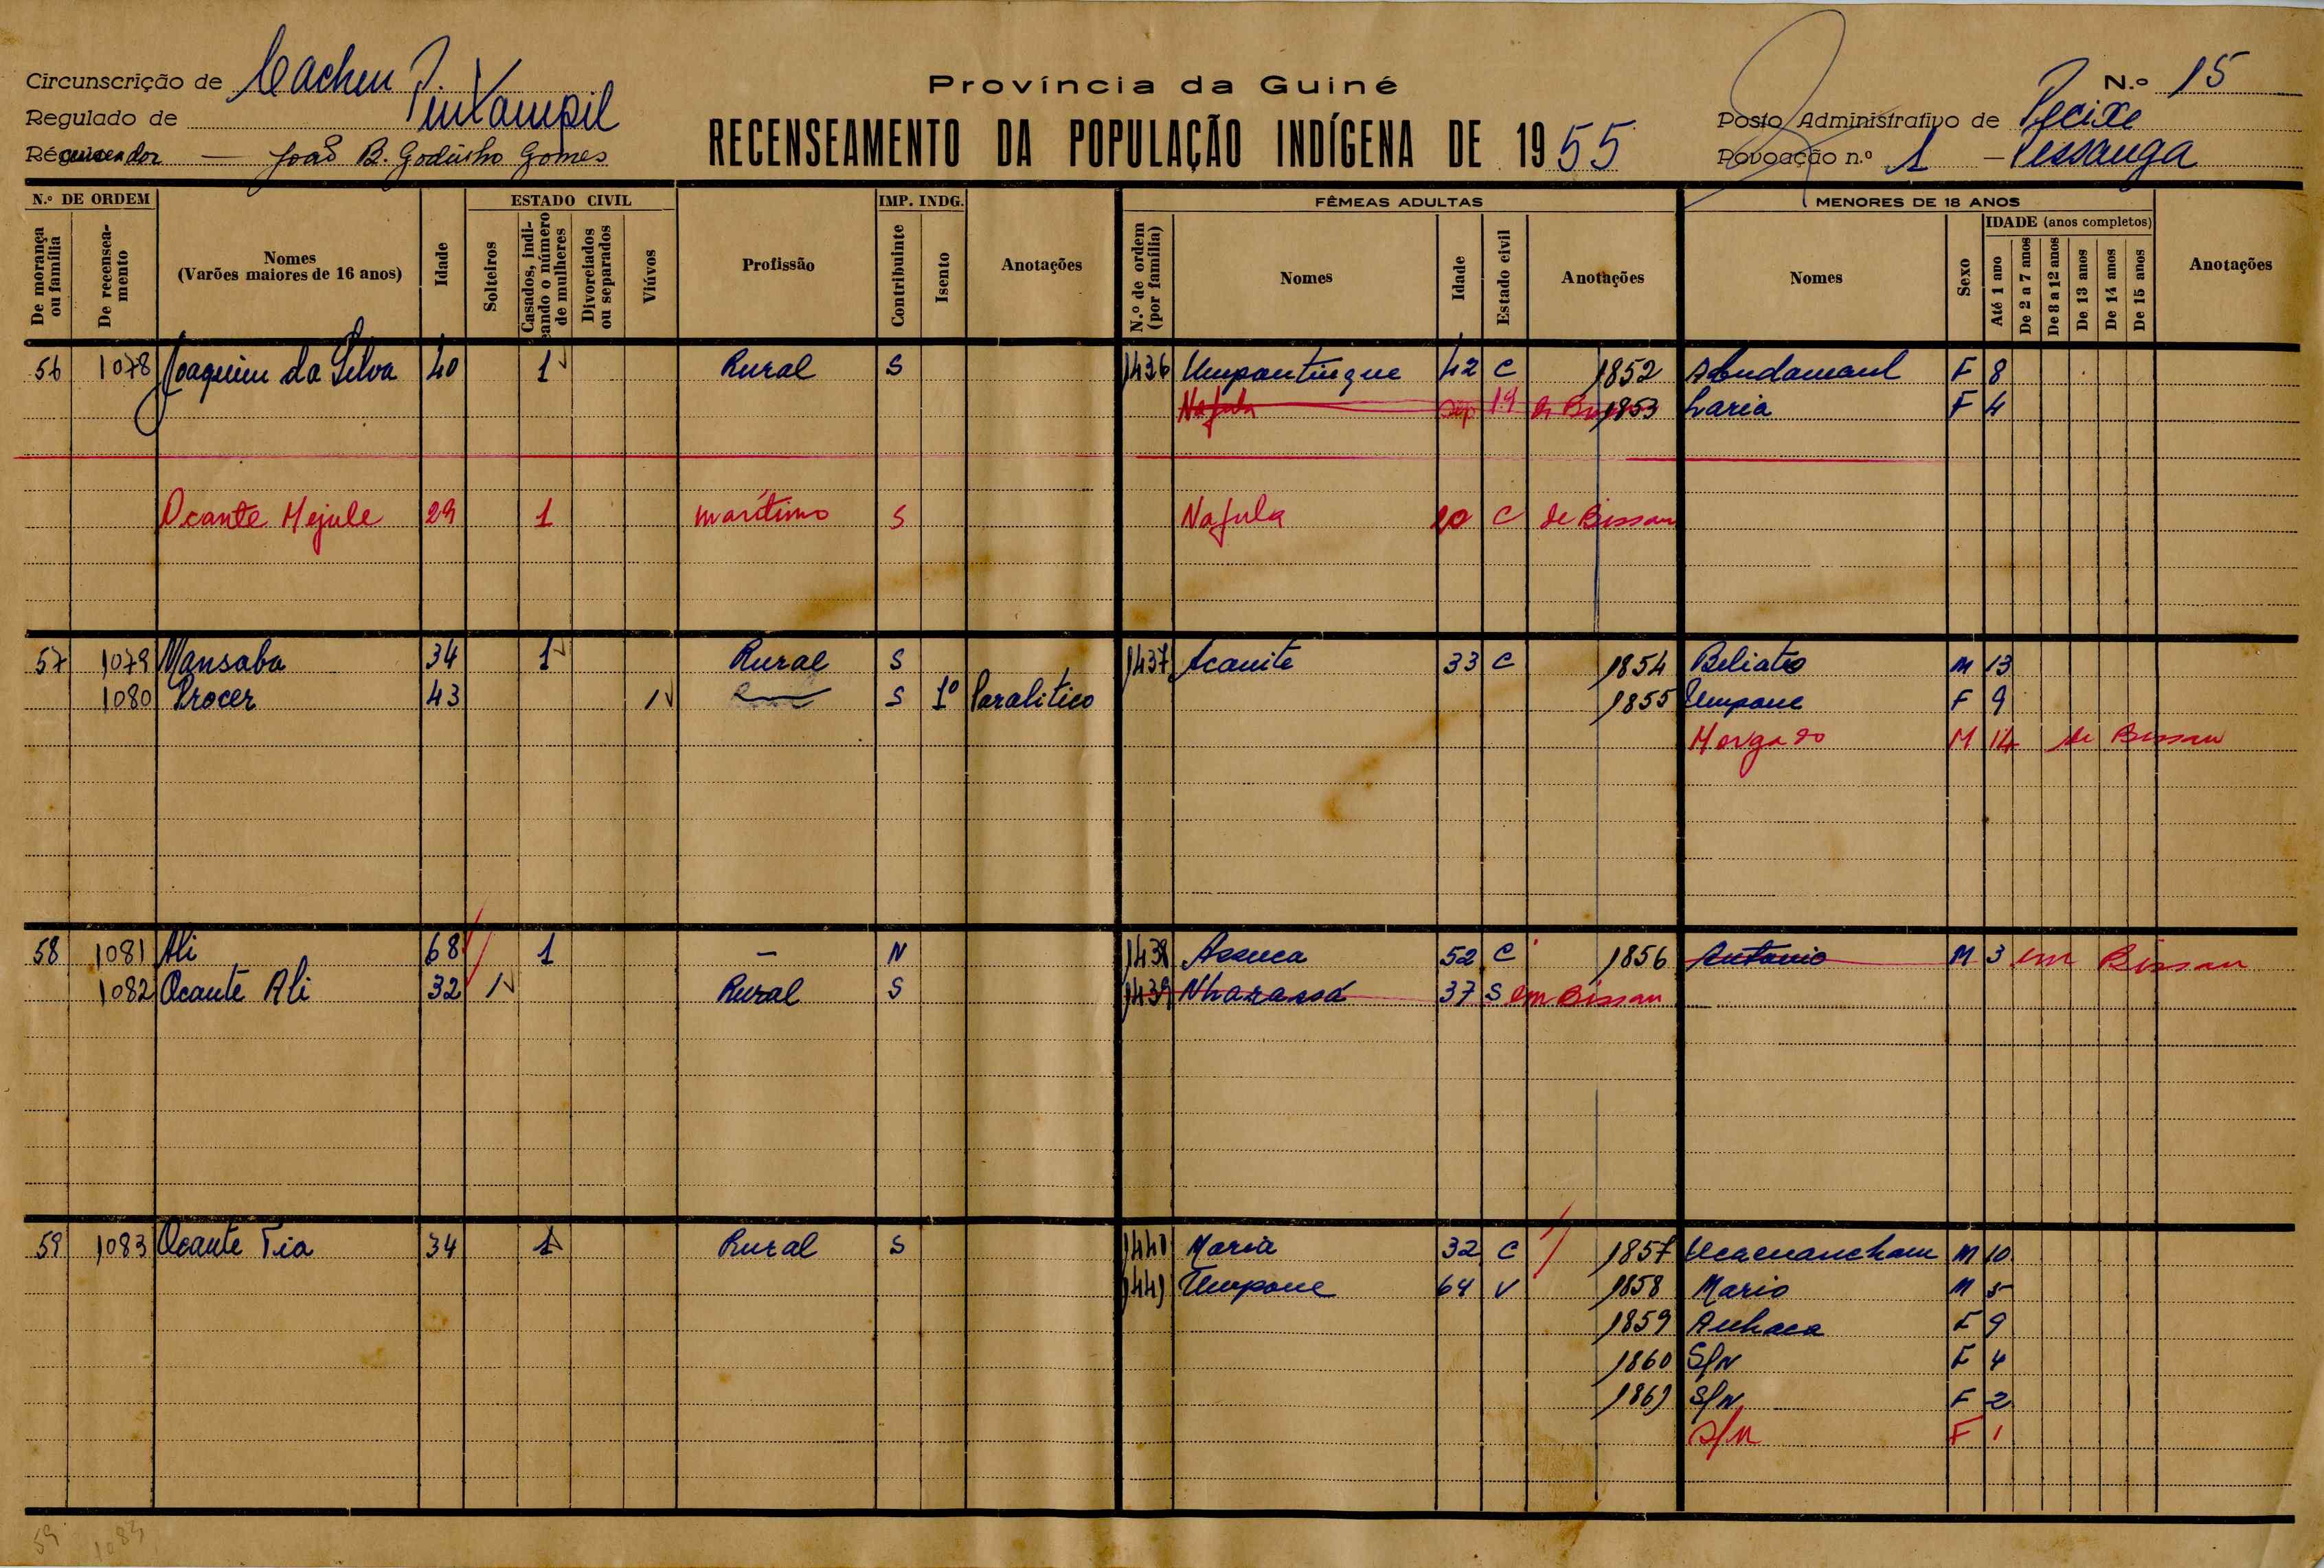 Circunscrição de Cacheu
Província da Guiné
N.º 15
Regulado de Pintampil
Posto Administrativo de Pecixe
RECENSEAMENTO DA POPULAÇÃO INDÍGENA DE 1955
João B. Godinho Gomes
Povoação n.º 1 – Pessanga
N.º DE ORDEM
ESTADO CIVIL
IMP. INDG.
FÊMEAS ADULTAS
MENORES DE 18 ANOS
De morança ou família
De recenseamento
Nomes (Varões maiores de 16 anos)
Idade
Solteiros
Casados, indicando o número de mulheres
Divorciados ou separados
Viúvos
Profissão
Contribuinte
Isento
Anotações
N.º de ordem (por família)
Nomes
Idade
Estado civil
Anotações
Nomes
Sexo
IDADE (anos completos)
Até 1 ano
De 2 a 7 anos
De 8 a 12 anos
De 13 anos
De 14 anos
De 15 anos
Anotações
56 1078 Joaquim da Silva 40 1 Rural S 1436 Umpontinque 42 C 1852 F 8
Nafula 19 1853 Laria F 4
Ocante Mejule 29 1 marítimo S Nafula 20 C de Bissau
57 1079 Mansaba 34 1 Rural S 1437 Acanite 33 C 1854 Beliato M 13
1080 Procer 43 1 S 1º Paralitico 1855 Umpane F 9
Morgado M 14 de Bissau
58 1081 Ali 68 1 – N 1438 Assuca 52 C 1856 Antonio M 3 em Bissau
1082 Ocante Ali 32 1 Rural S 1439 Nharassá 37 S em Bissau
59 1083 Ocante Tia 34 1 Rural S 1440 Maria 32 C 1857 M 10
1441 Umpone 64 V 1858 Mario M 5
1859 Anhaca F 9
1860 S/N F 4
1861 S/N F 2
S/N F 1
59 1083